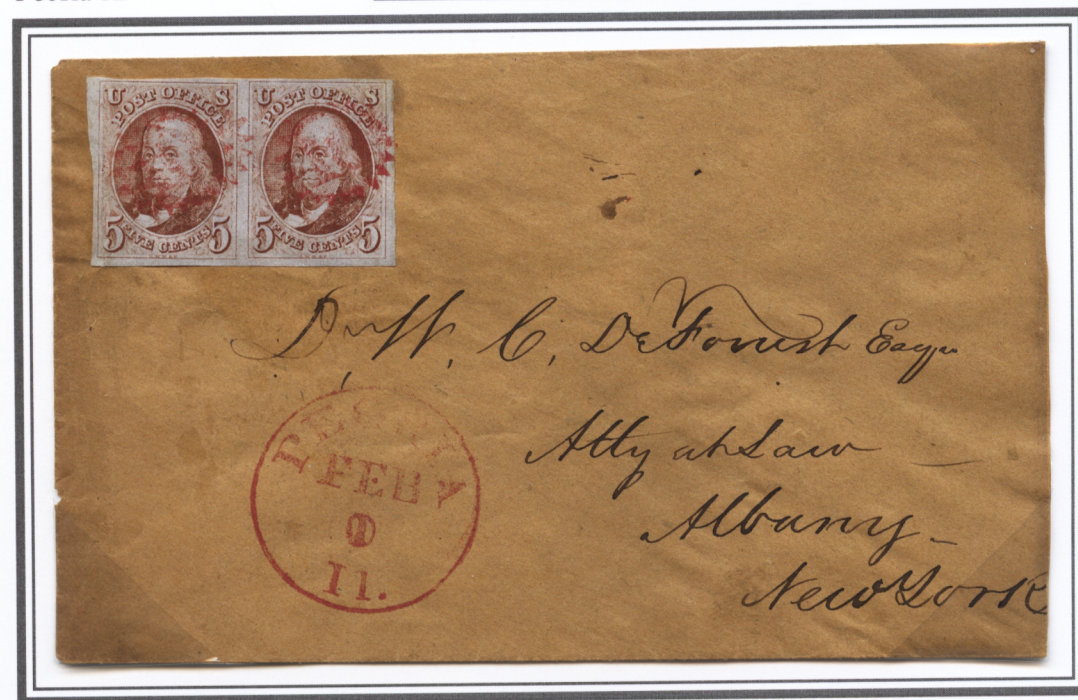 U S
POST OFFICE
5 FIVE CENTS 5
U S
POST OFFICE
5 FIVE CENTS 5
W. C. DeForrest Esqr
Atty at Law
Albany
New York
PEORIA
FEB
9
Il.